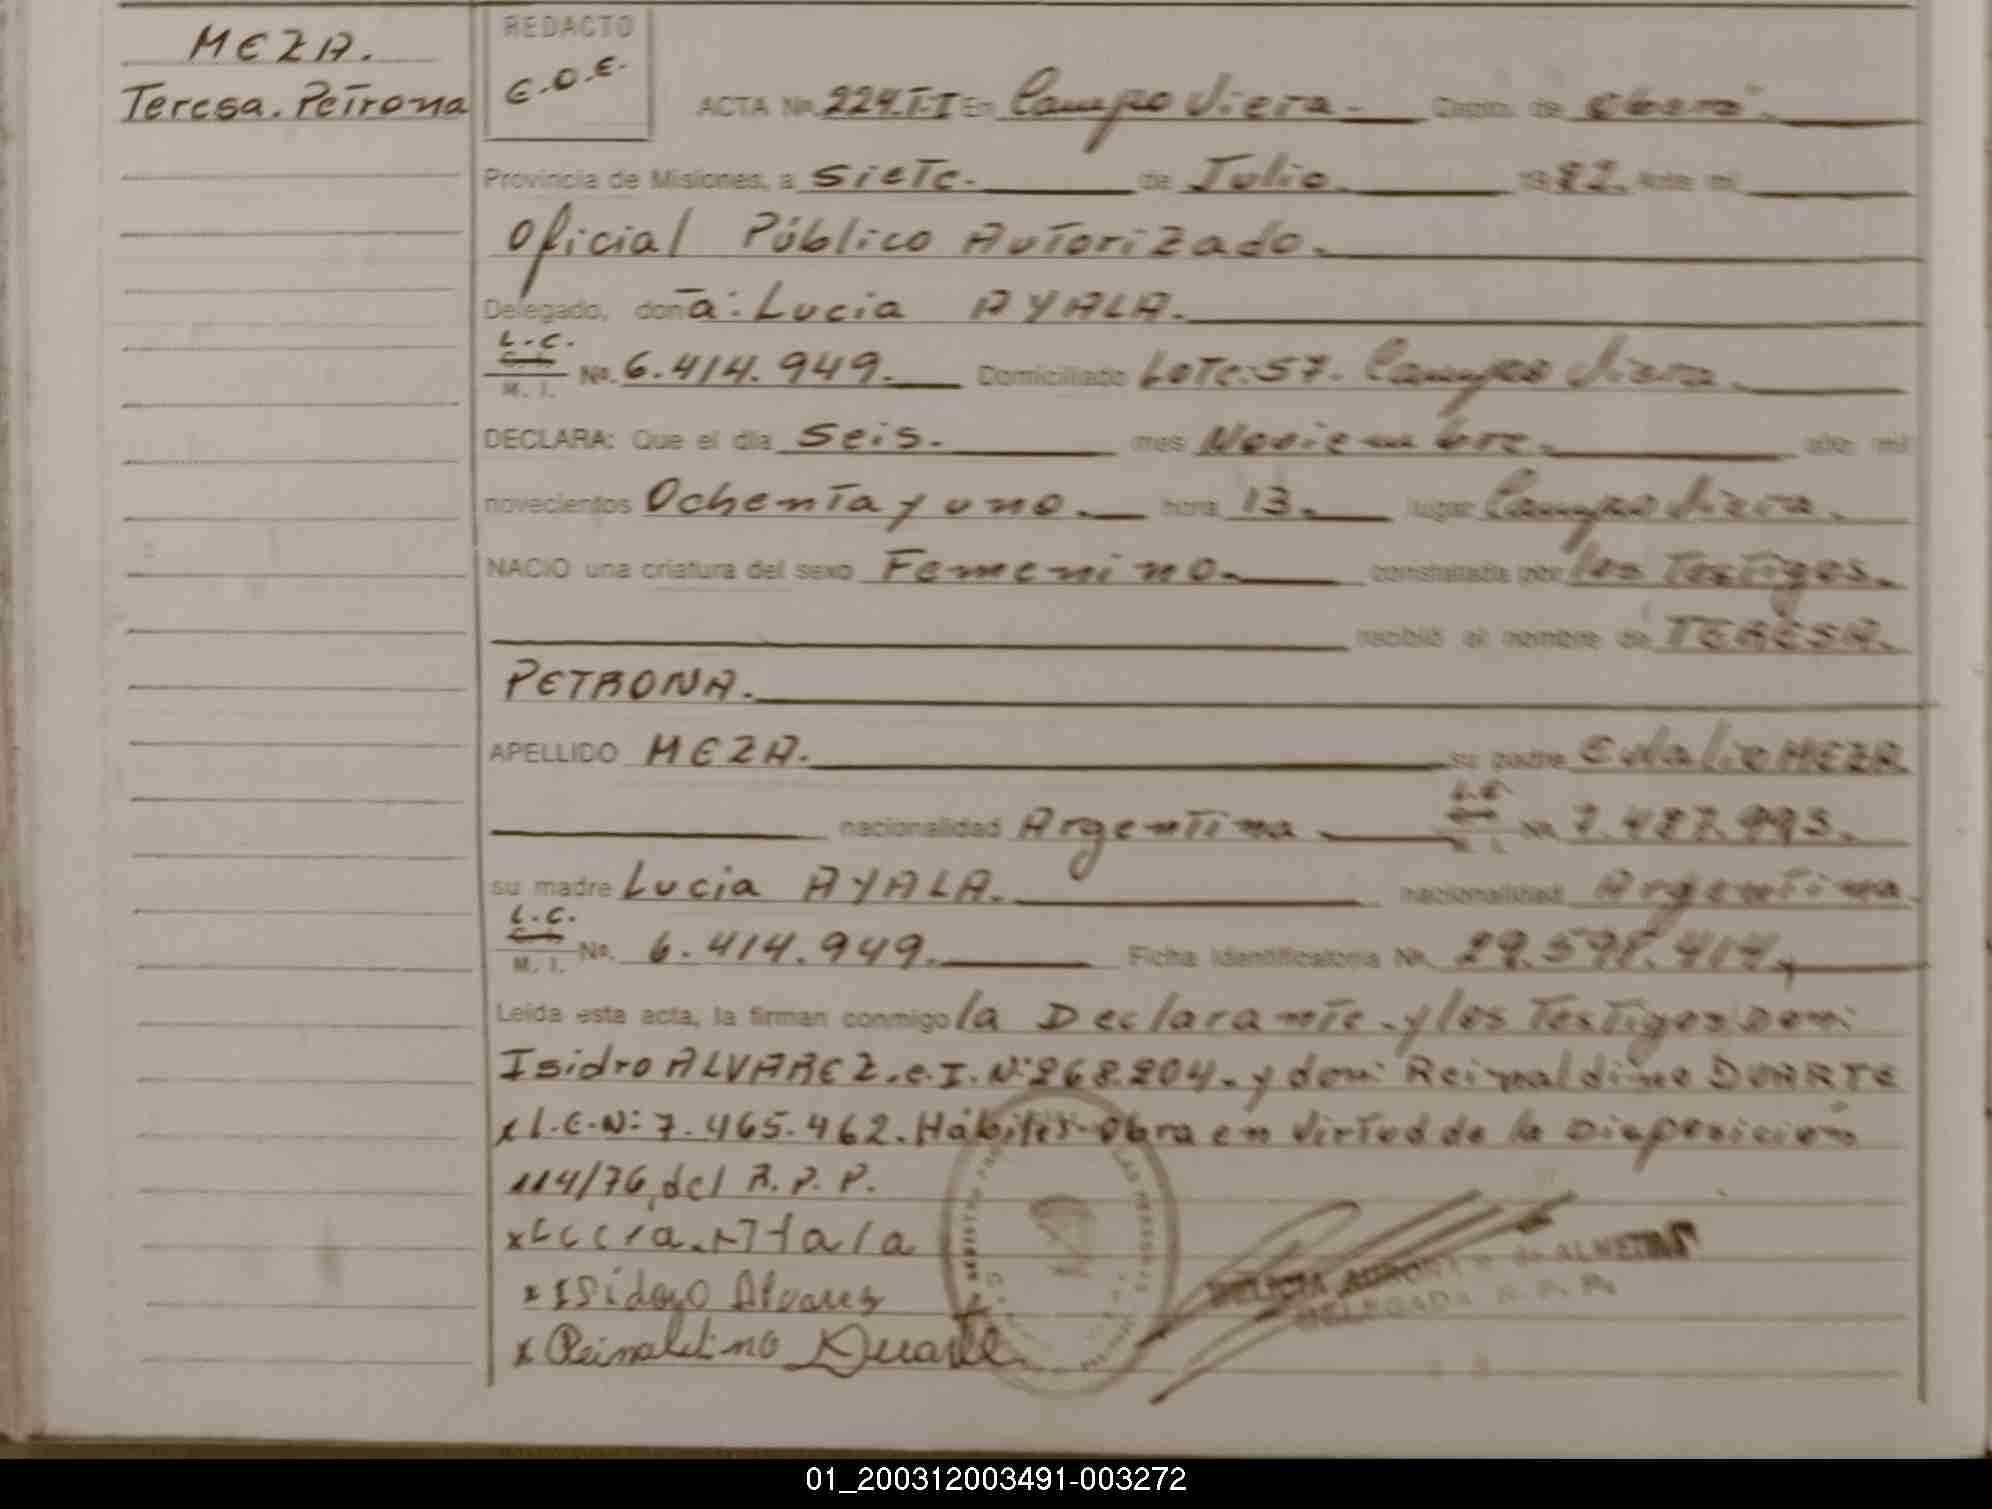 MEZA.
Teresa. Petrona
REDACTO
E.O.E.
ACTA No. 224. T-I En Campo Viera. Depto. de Oberá.
Provincia de Misiones, a siete. de Julio. 1982. Ante mí
Oficial Público Autorizado.
Delegado, doña: Lucia AYALA.
L.C.
C. I.
M. I. No. 6.414.949. Domiciliado Lote:57. Campo Viera.
DECLARA: Que el día Seis. mes Noviembre. año mil
novecientos Ochenta y uno. hora 13. lugar Campo Viera.
NACIO una criatura del sexo Femenino. constatada por los Testigos.
recibió el nombre de TERESA.
PETRONA.
APELLIDO MEZA. su padre Eulalio MEZA
nacionalidad Argentina L.E. No. 7.487.993.
su madre Lucia AYALA. nacionalidad Argentina.
L.C.
C. I.
M. I. No. 6.414.949. Ficha Identificatoria No. 29.598.414,
Leída esta acta, la firman conmigo la Declarante. y los Testigos Don:
Isidro ALVAREZ. C.I. N: 268.204. y don: Reinaldino DUARTE
x L.E.N: 7.465.462. Hábiles-Obra en virtud de la Disposición
114/76, del R.P.P.
x Isidoro Alvares
x Reinaldino Duarte
DELEGADA R. P. P.
01_200312003491-003272